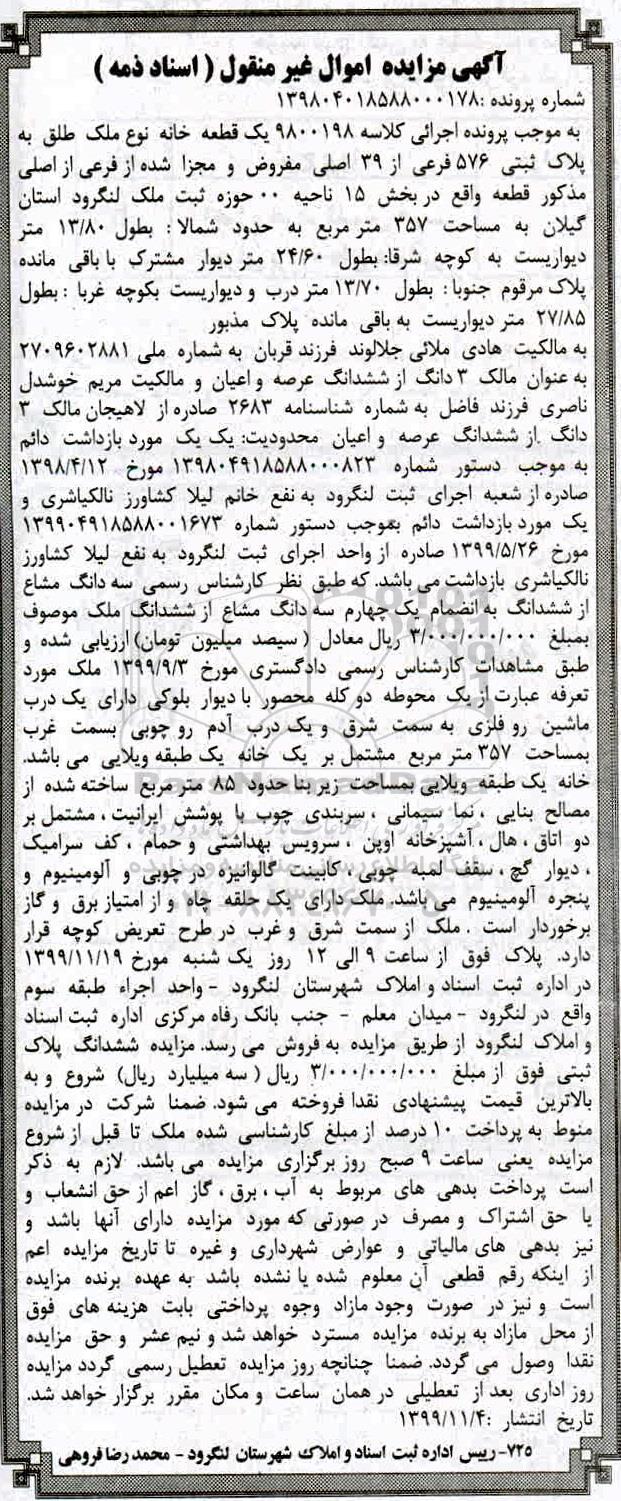 آگهی مزایده اموال غیر منقول ( اسناد ذمه )
شماره پرونده :۱۳۹۸۰۴۰۱۸۵۸۸۰۰۰۱۷۸
به موجب پرونده اجرائی کلاسه ۹۸۰۰۱۹۸ یک قطعه خانه نوع ملک طلق به
پلاک ثبتی ۵۷۶ فرعی از ۳۹ اصلی مفروض و مجزا شده از فرعی از اصلی
مذکور قطعه واقع در بخش ۱۵ ناحیه ۰۰ حوزه ثبت ملک لنگرود استان
گیلان به مساحت ۳۵۷ متر مربع به حدود شمالا : بطول ۱۳/۸۰ متر
دیواریست به کوچه شرقا: بطول ۲۴/۶۰ متر دیوار مشترک با باقی مانده
پلاک مرقوم جنوبا : بطول ۱۳/۷۰ متر درب و دیواریست بکوچه غربا : بطول
۲۷/۸۵ متر دیواریست به باقی مانده پلاک مذبور
به مالکیت هادی ملائی جلالوند فرزند قربان به شماره ملی ۲۷۰۹۶۰۲۸۸۱
به عنوان مالک ۳ دانگ از ششدانگ عرصه و اعیان و مالکیت مریم خوشدل
ناصری فرزند فاضل به شماره شناسنامه ۲۶۸۳ صادره از لاهیجان مالک ۳
دانگ از ششدانگ عرصه و اعیان محدودیت: یک یک مورد بازداشت دائم
به موجب دستور شماره ۱۳۹۸۰۴۹۱۸۵۸۸۰۰۰۸۲۳ مورخ ۱۳۹۸/۴/۱۲
صادره از شعبه اجرای ثبت لنگرود به نفع خانم لیلا کشاورز نالکیاشری و
یک مورد بازداشت دائم بموجب دستور شماره ۱۳۹۹۰۴۹۱۸۵۸۸۰۰۱۶۷۳
مورخ ۱۳۹۹/۵/۲۶ صادره از واحد اجرای ثبت لنگرود به نفع لیلا کشاورز
نالکیاشری بازداشت می باشد. که طبق نظر کارشناس رسمی سه دانگ مشاع
از ششدانگ به انضمام یک چهارم سه دانگ مشاع از ششدانگ ملک موصوف
بمبلغ ۳/۰۰۰/۰۰۰/۰۰۰ ریال معادل ( سیصد میلیون تومان) ارزیابی شده و
طبق مشاهدات کارشناس رسمی دادگستری مورخ ۱۳۹۹/۹/۳ ملک مورد
تعرفه عبارت از یک محوطه دو کله محصور با دیوار بلوکی دارای یک درب
ماشین رو فلزی به سمت شرق و یک درب آدم رو چوبی بسمت غرب
بمساحت ۳۵۷ متر مربع مشتمل بر یک خانه یک طبقه ویلایی می باشد.
خانه یک طبقه ویلایی بمساحت زیر بنا حدود ۸۵ متر مربع ساخته شده از
مصالح بنایی ، نما سیمانی ، سربندی چوب با پوشش ایرانیت ، مشتمل بر
دو اتاق ، هال ، آشپزخانه اوپن ، سرویس بهداشتی و حمام ، کف سرامیک
، دیوار گچ ، سقف لمبه چوبی ، کابینت گالوانیزه در چوبی و آلومینیوم و
پنجره آلومینیوم می باشد. ملک دارای یک حلقه چاه و از امتیاز برق و گاز
برخوردار است . ملک از سمت شرق و غرب در طرح تعریض کوچه قرار
دارد. پلاک فوق از ساعت ۹ الی ۱۲ روز یک شنبه مورخ ۱۳۹۹/۱۱/۱۹
در اداره ثبت اسناد و املاک شهرستان لنگرود - واحد اجراء طبقه سوم
واقع در لنگرود - میدان معلم - جنب بانک رفاه مرکزی اداره ثبت اسناد
و املاک لنگرود از طریق مزایده به فروش می رسد. مزایده ششدانگ پلاک
ثبتی فوق از مبلغ ۳/۰۰۰/۰۰۰/۰۰۰ ریال ( سه میلیارد ریال) شروع و به
بالاترین قیمت پیشنهادی نقدا فروخته می شود. ضمنا شرکت در مزایده
منوط به پرداخت ۱۰ درصد از مبلغ کارشناسی شده ملک تا قبل از شروع
مزایده یعنی ساعت ۹ صبح روز برگزاری مزایده می باشد. لازم به ذکر
است پرداخت بدهی های مربوط به آب ، برق ، گاز اعم از حق انشعاب و
یا حق اشتراک و مصرف در صورتی که مورد مزایده دارای آنها باشد و
نیز بدهی های مالیاتی و عوارض شهرداری و غیره تا تاریخ مزایده اعم
از اینکه رقم قطعی آن معلوم شده یا نشده باشد به عهده برنده مزایده
است و نیز در صورت وجود مازاد وجوه پرداختی بابت هزینه های فوق
از محل مازاد به برنده مزایده مسترد خواهد شد و نیم عشر و حق مزایده
نقدا وصول می گردد. ضمنا چنانچه روز مزایده تعطیل رسمی گردد مزایده
روز اداری بعد از تعطیلی در همان ساعت و مکان مقرر برگزار خواهد شد.
تاریخ انتشار :۱۳۹۹/۱۱/۴
۷۲۵- رییس اداره ثبت اسناد و املاک شهرستان لنگرود - محمد رضا فروهی